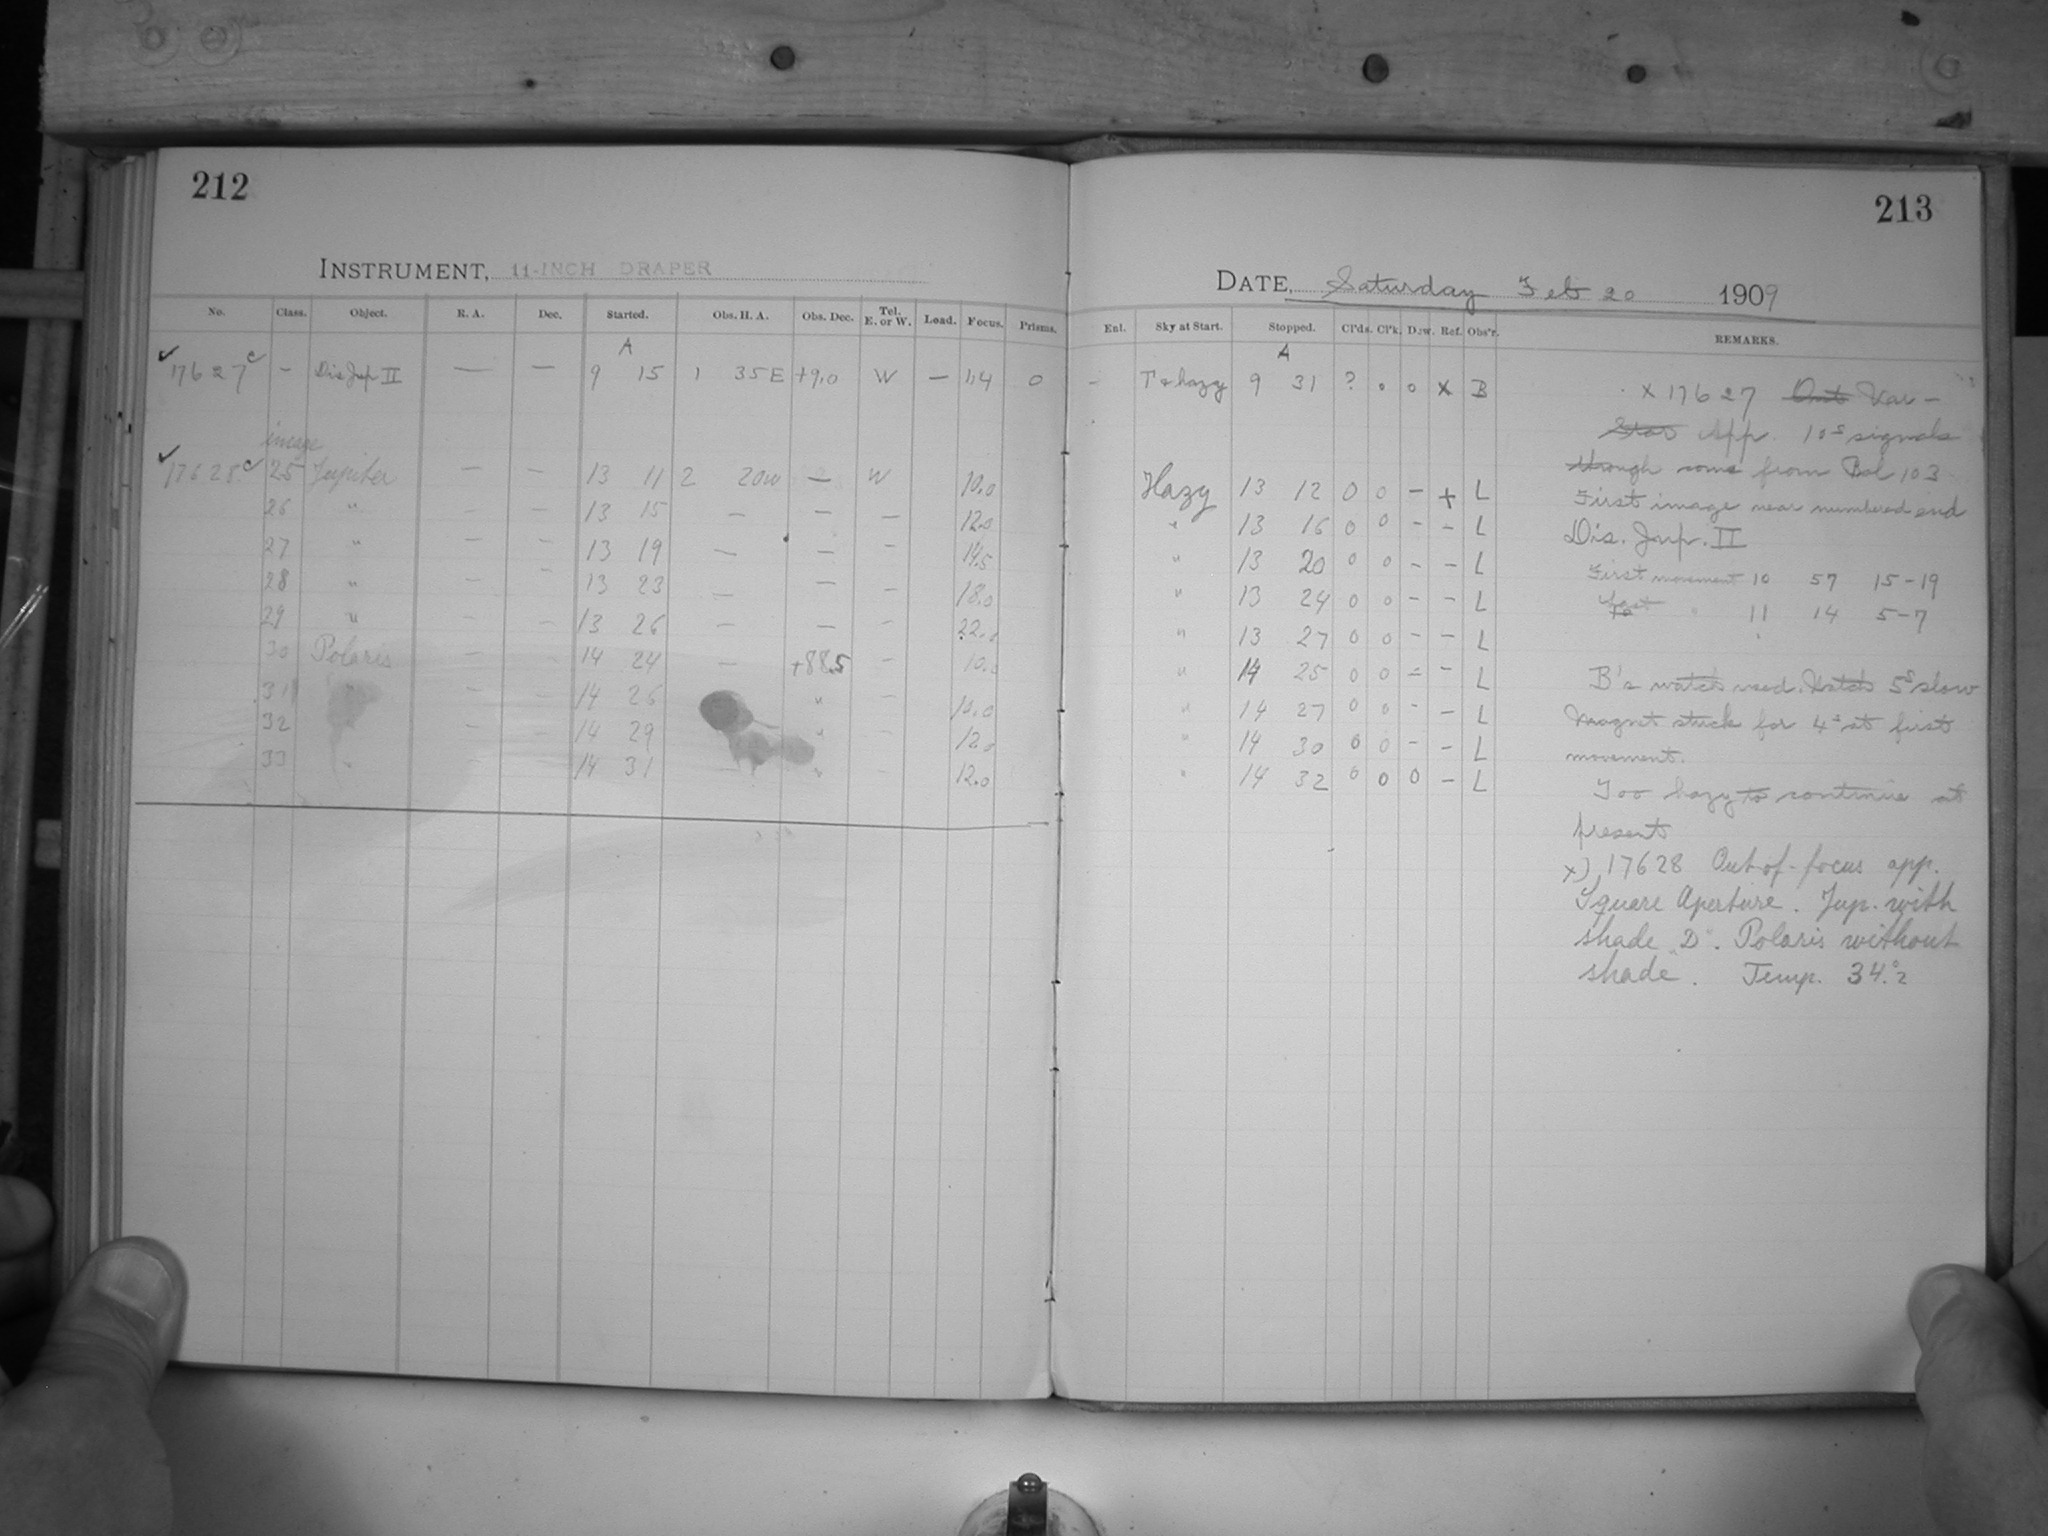 212
INSTRUMENT, 11-INCH DRAPER
No. Class. Object. R. A. Dec. Started. Obs. H. A. Obs. Dec. Tel. E. or W. Load. Focus. Prisms.
A
17627 c – Dis Jup II — — 9 15 1 35 E +9.0 W — 1.4 0
image
17628 c 25 Jupiter — — 13 11 2 20 W — W 10.0
26 " — — 13 15 — — — 12.0
27 " — — 13 19 — — — 14.5
28 " — — 13 23 — — — 18.0
29 " — — 13 26 — — — 22.0
30 Polaris — — 14 24 — +88.5 — 10.0
31 " — — 14 26 " — 10.0
32 — — 14 29 " — 12.0
33 " — — 14 31 — " — 12.0
213
DATE, Saturday Feb 20 1909
Ent. Sky at Start. Stopped. Cl'ds. Cl'k. Dew. Ref. Obs'r. REMARKS.
A
– 9 31 ? 0 0 X B
Hazy 13 12 0 0 – + L
" 13 16 0 0 – – L
" 13 20 0 0 – – L
" 13 24 0 0 – – L
" 13 27 0 0 – – L
" 14 25 0 0 – – L
" 14 27 0 0 – – L
" 14 30 0 0 – – L
" 14 32 0 0 0 – L
X 17627 Out Var –
Star App. 10s signals
through some from Bol 103
First image near numbered end
Dis. Jup. II
First movement 10 57 15–19
Last " 11 14 5–7
B's watch used. Watch 5s slow
Magnet stuck for 4s at first
movement.
Too hazy to continue at
present
x) 17628 Out-of-focus app.
Square Aperture. Jup. with
shade "D". Polaris without
shade. Temp. 34.°2